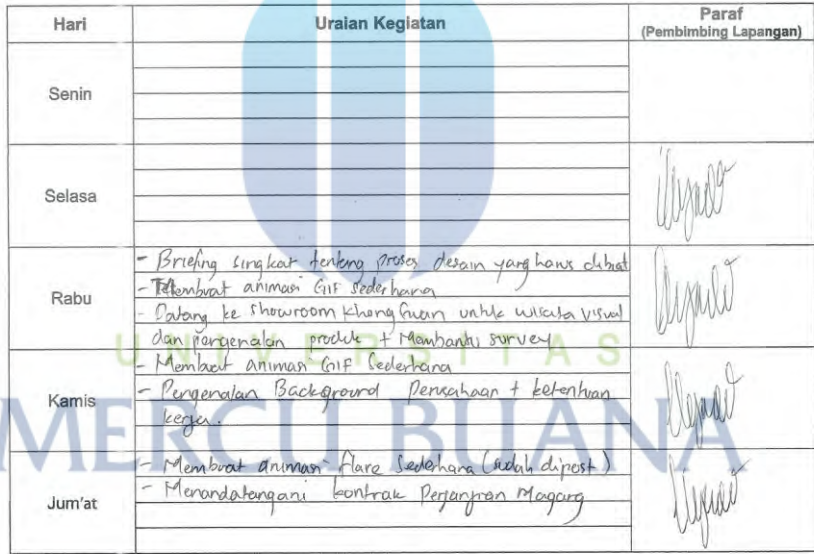 Hari Uraian Kegiatan Paraf
(Pembimbing Lapangan)
Senin
Selasa
Rabu
- Briefing singkat tentang proses desain yang harus dibuat
- Membuat animasi GIF sederhana
- Datang ke showroom Khong Guan untuk wisata visual
dan pengenalan produk + Membantu survey
UNIVERSITAS
Kamis
- Membuat animasi GIF Sederhana
- Pengenalan Background Perusahaan + ketentuan
kerja.
MERCU BUANA
Jum'at
- Membuat animasi flare Sederhana (sudah dipost)
- Menandatangani kontrak Perjanjian Magang